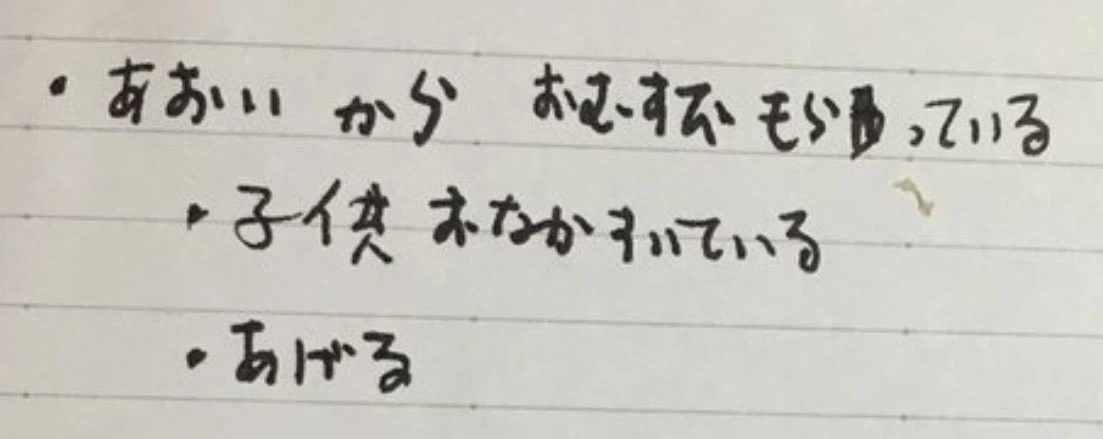 ・あおいから おむすびもらっている
・子供おなかすいている
・あげる